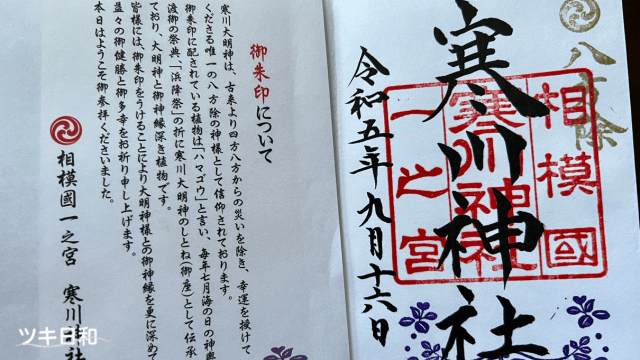 八方除
寒川神社
相模國
一之宮
寒川神社
令和五年九月十六日
御朱印について
寒川大明神は、古来より四方八方からの災いを除き、幸運を授けて
くださる唯一の八方除の神様として信仰されております。
御朱印に配されている植物は「ハマゴウ」と言い、毎年七月海の日の神輿
渡御の祭典、「浜降祭」の折に寒川大明神のしとね(御座)として伝承
ており、大明神と御神縁深き植物です。
皆様には、御朱印をうけることにより大明神様との御神縁を更に深めて
益々の御健勝と御多幸をお祈り申し上げます。
本日はようこそ御参拝くださいました。
相模國一之宮 寒川神社
ツキ日和